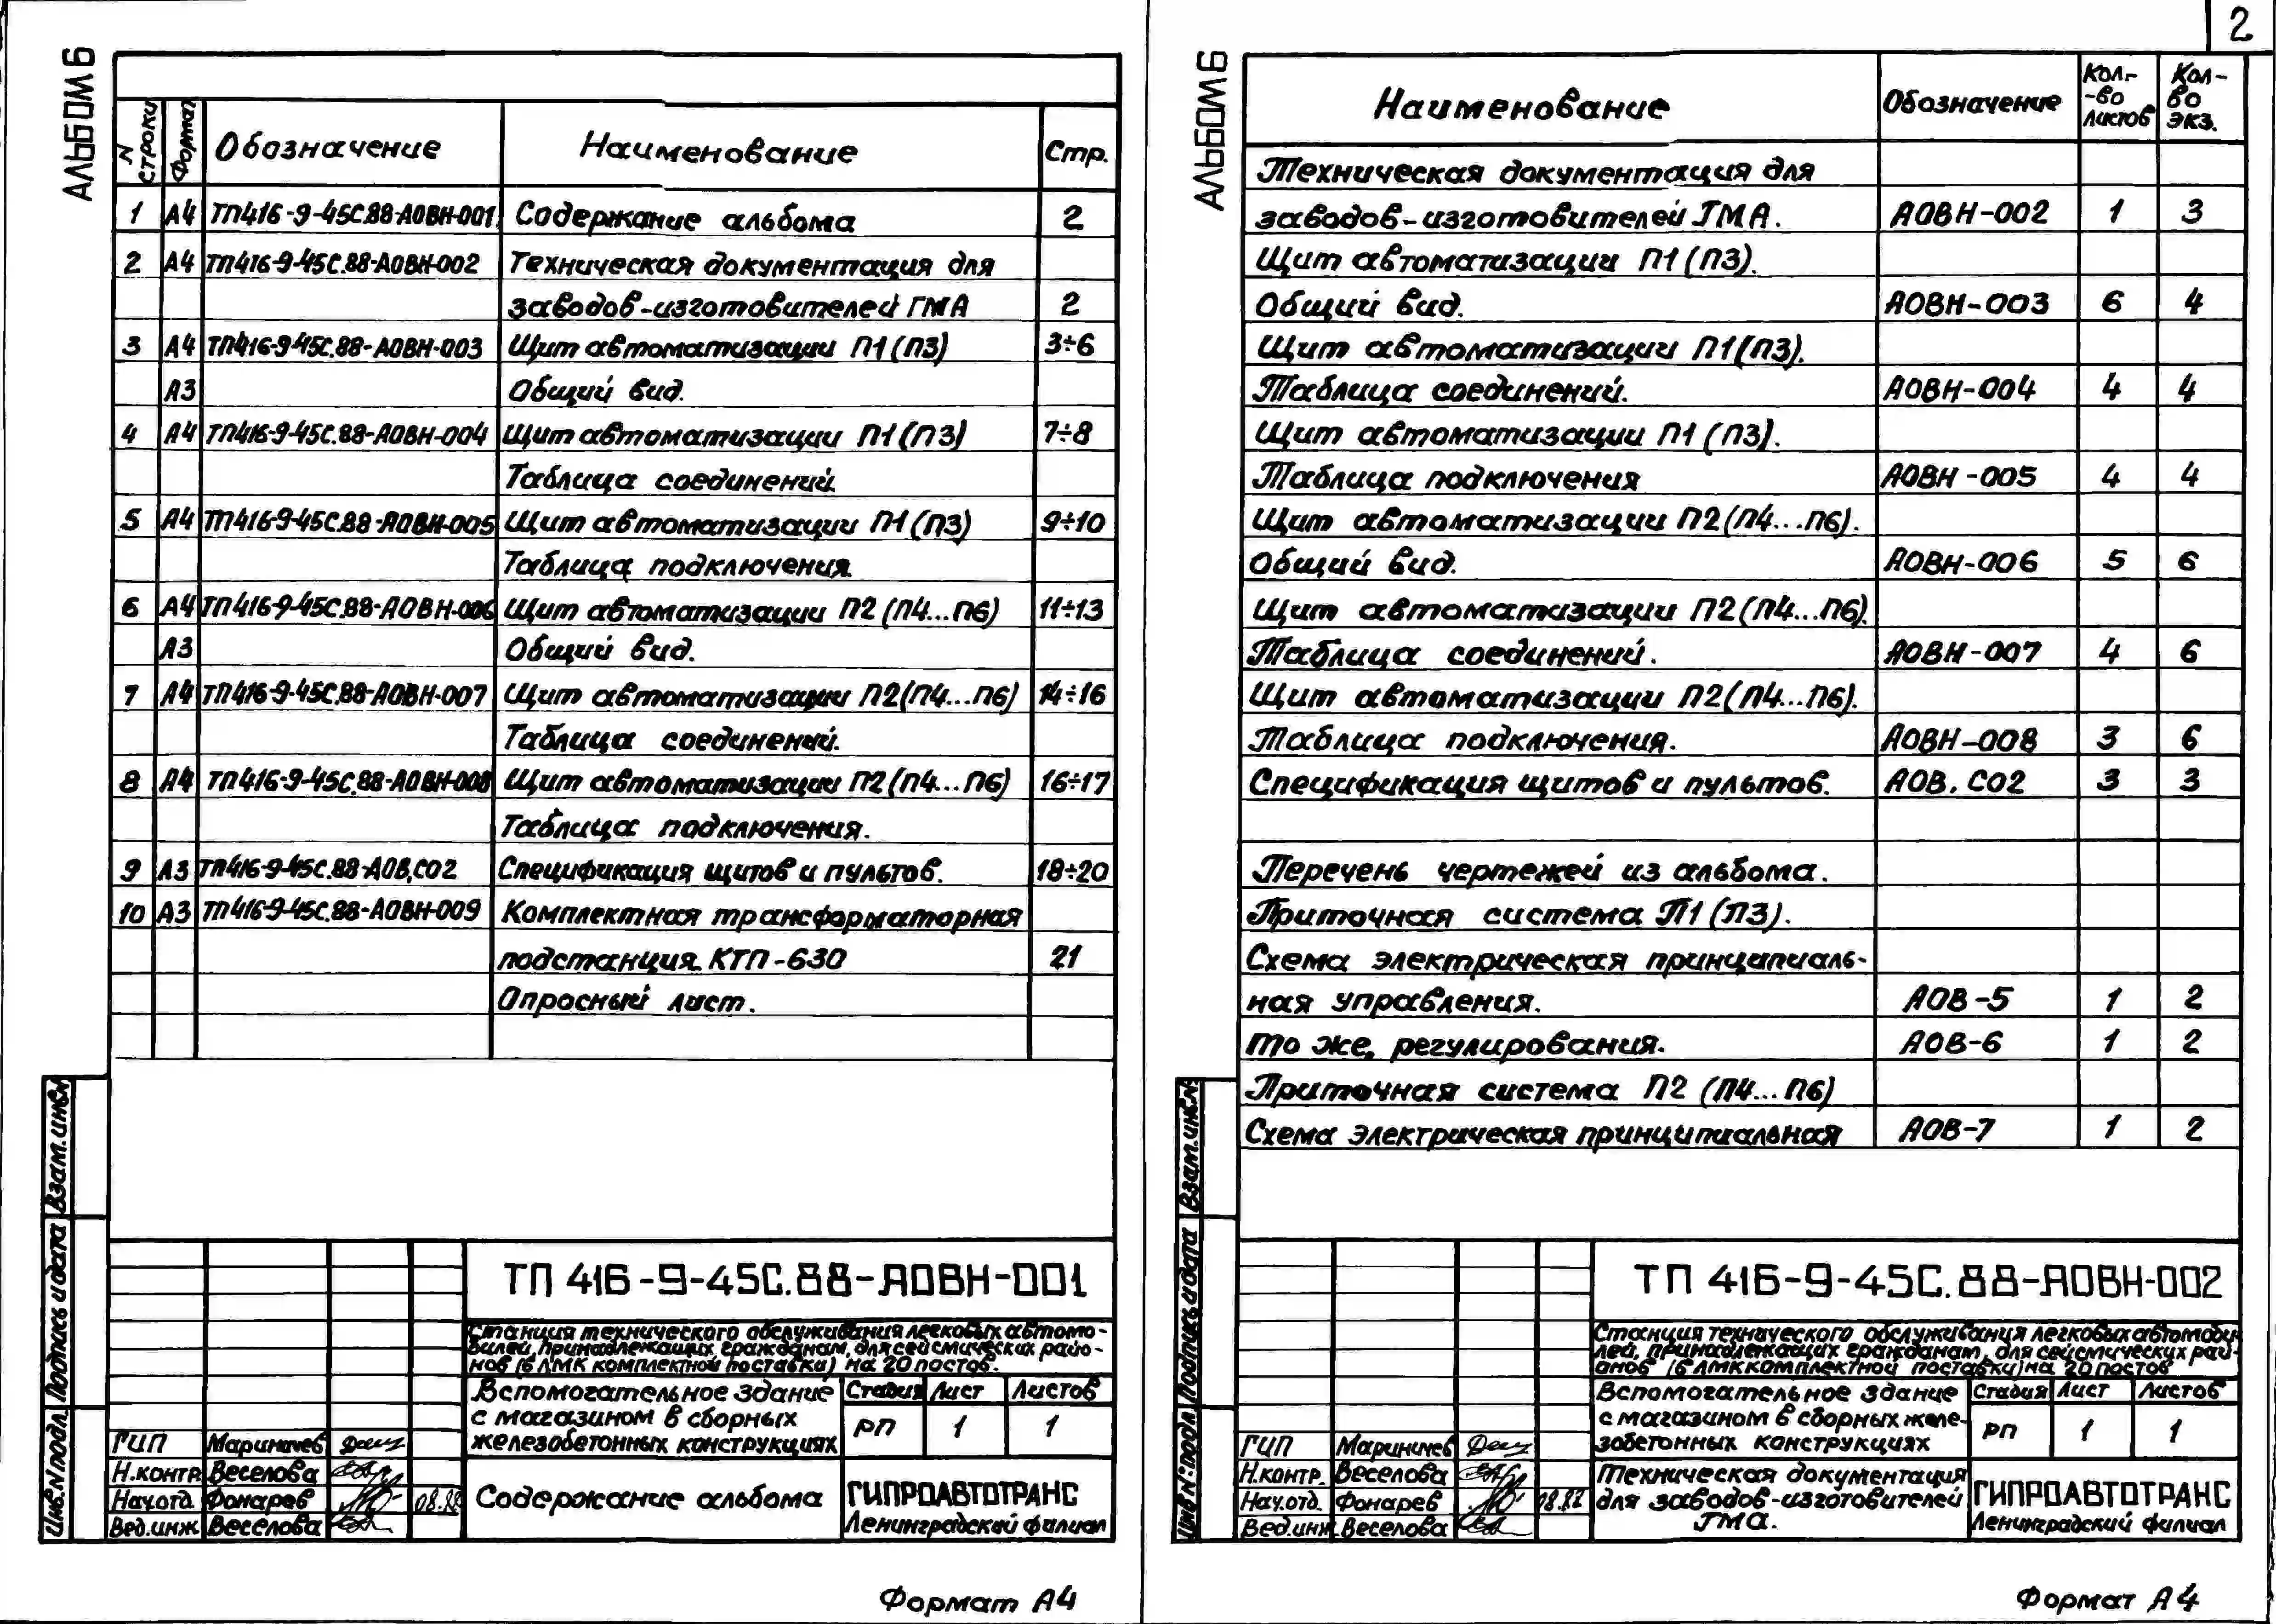 2
АЛЬБОМ 6
N строки Формат Обозначение Наименование Стр.
1 А4 ТП416-9-45С.88-АОВН-001 Содержание альбома 2
2 А4 ТП416-9-45С.88-АОВН-002 Техническая документация для
заводов-изготовителей ГМА 2
3 А4 ТП416-9-45С.88-АОВН-003 Щит автоматизации П1(П3) 3÷6
А3 Общий вид.
4 А4 ТП416-9-45С.88-АОВН-004 Щит автоматизации П1(П3) 7÷8
Таблица соединений.
5 А4 ТП416-9-45С.88-АОВН-005 Щит автоматизации П1(П3) 9÷10
Таблица подключения.
6 А4 ТП416-9-45С.88-АОВН-006 Щит автоматизации П2(П4...П6) 11÷13
А3 Общий вид.
7 А4 ТП416-9-45С.88-АОВН-007 Щит автоматизации П2(П4...П6) 14÷16
Таблица соединений.
8 А4 ТП416-9-45С.88-АОВН-008 Щит автоматизации П2(П4...П6) 16÷17
Таблица подключения.
9 А3 ТП416-9-45С.88-АОВ.СО2 Спецификация щитов и пультов. 18÷20
10 А3 ТП416-9-45С.88-АОВН-009 Комплектная трансформаторная
подстанция. КТП-630 21
Опросный лист.
Взам.инв.N
Подпись и дата
Инв.N подл.
ТП 416-9-45С.88-АОВН-001
Станция технического обслуживания легковых автомо-
билей, принадлежащих гражданам, для сейсмических райо-
нов (б ЛМК комплектной поставки) на 20 постов.
Вспомогательное здание
с магазином в сборных
железобетонных конструкциях
Стадия Лист Листов
РП 1 1
ГИП Мариничев
Н.контр. Веселова
Нач.отд. Фонарев 08.88
Вед.инж. Веселова
Содержание альбома
ГИПРОАВТОТРАНС
Ленинградский филиал
Формат А4
АЛЬБОМ 6
Наименование Обозначение Кол-
-во
листов Кол-
во
экз.
Техническая документация для
заводов-изготовителей ГМА. АОВН-002 1 3
Щит автоматизации П1(П3).
Общий вид. АОВН-003 6 4
Щит автоматизации П1(П3).
Таблица соединений. АОВН-004 4 4
Щит автоматизации П1(П3).
Таблица подключения АОВН-005 4 4
Щит автоматизации П2(П4...П6).
Общий вид. АОВН-006 5 6
Щит автоматизации П2(П4...П6).
Таблица соединений. АОВН-007 4 6
Щит автоматизации П2(П4...П6).
Таблица подключения. АОВН-008 3 6
Спецификация щитов и пультов. АОВ.СО2 3 3
Перечень чертежей из альбома.
Приточная система П1(П3).
Схема электрическая принципиаль-
ная управления. АОВ-5 1 2
То же, регулирования. АОВ-6 1 2
Приточная система П2 (П4...П6)
Схема электрическая принципиальная АОВ-7 1 2
Взам.инв.N
Подпись и дата
Инв.N подл.
ТП 416-9-45С.88-АОВН-002
Станция технического обслуживания легковых автомоби-
лей, принадлежащих гражданам, для сейсмических рай-
онов (б ЛМК комплектной поставки) на 20 постов
Вспомогательное здание
с магазином в сборных желе-
зобетонных конструкциях
Стадия Лист Листов
РП 1 1
ГИП Мариничев
Н.контр. Веселова
Нач.отд. Фонарев 08.88
Вед.инж. Веселова
Техническая документация
для заводов-изготовителей
ГМА.
ГИПРОАВТОТРАНС
Ленинградский филиал
Формат А4